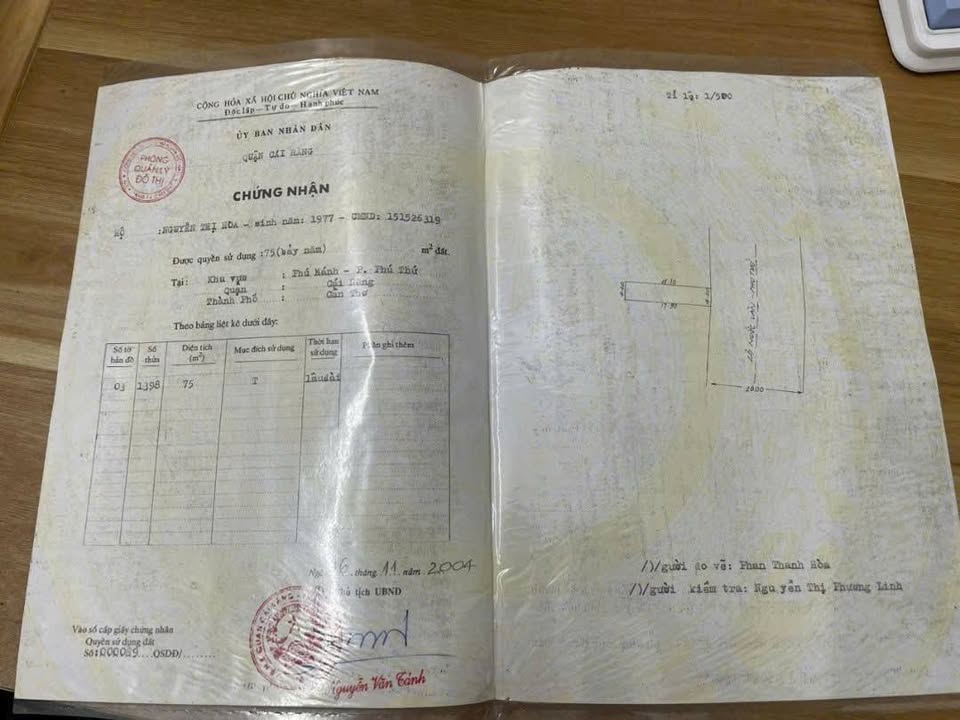 CỘNG HÒA XÃ HỘI CHỦ NGHĨA VIỆT NAM
Độc lập - Tự do - Hạnh phúc
ỦY BAN NHÂN DÂN
QUẬN CÁI RĂNG
PHÒNG
QUẢN LÝ
ĐÔ THỊ
CHỨNG NHẬN
Hộ :NGUYỄN THỊ HÒA - sinh năm: 1977 - CMND: 151526319
Được quyền sử dụng :75(bảy năm) m² đất.
Tại: Khu vực : Phú Khánh - P. Phú Thứ
Quận : Cái Răng
Thành Phố : Cần Thơ
Theo bảng liệt kê dưới đây:
Số tờ bản đồ Số thửa Diện tích (m²) Mục đích sử dụng Thời hạn sử dụng Phần ghi thêm
03 1398 75 T lâu dài
6 tháng 11 năm 2004
tịch UBND
Vào sổ cấp giấy chứng nhận
Quyền sử dụng đất
Số: QSDĐ/
Nguyễn Văn Tánh
Tỉ lệ: 1/500
20.00
Người đo vẽ: Phan Thanh Hòa
Người kiểm tra: Nguyễn Thị Phương Linh